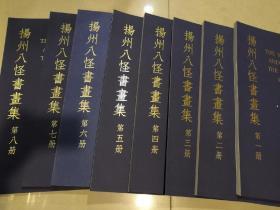 揚州八怪書畫集
第八册
揚州八怪書畫集
第七册
揚州八怪書畫集
第六册
揚州八怪書畫集
第五册
揚州八怪書畫集
第四册
揚州八怪書畫集
第三册
揚州八怪書畫集
第二册
THE
AND
THE
揚州八怪書畫集
第一册